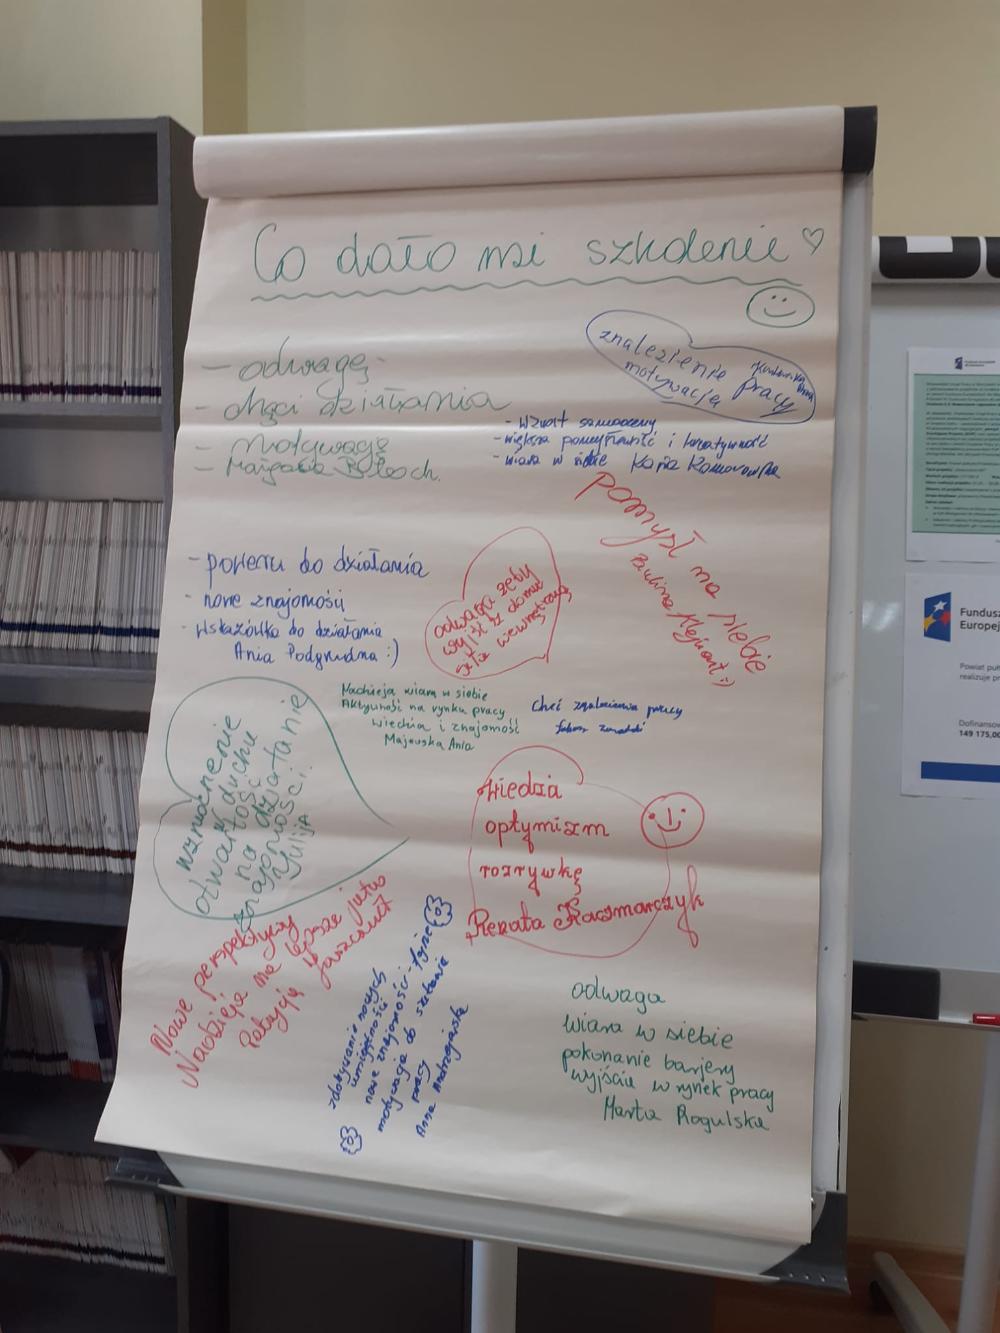 Co dało mi szkolenie ♡
- odwagę
- chęci działania
- motywację
- Małgosia
znalezienie pracy
motywacja
- wzrost samooceny
- większa pomysłowość i kreatywność
- wiara w siebie Kasia Komorowska
pomysł na siebie
Paulina :)
- poweru do działania
- nowe znajomości
- wskazówka do działania
Ania :)
odwaga żeby
wyjść z domu
siła wewnętrzna
Nadzieja wiara w siebie
Aktywność na rynku pracy
Wiedza i znajomość
Majewska Ania
Chęć znalezienia pracy
wzmocnienie
w duchu
otwartość
na działanie
znajomości
Yulija
wiedza
optymizm
rozrywkę
Renata Kaczmarczyk
Nowe perspektywy
Nadzieja na lepsze jutro
Patrycja
zdobywanie nowych
umiejętności
nowe znajomości - fajne
motywacja do szukania
pracy
Anna
odwaga
wiara w siebie
pokonanie bariery
wyjście w rynek pracy
Marta Rogulska
Fundusze
Europej
Powiat
realizuje
Dofinansowa
149 175,00